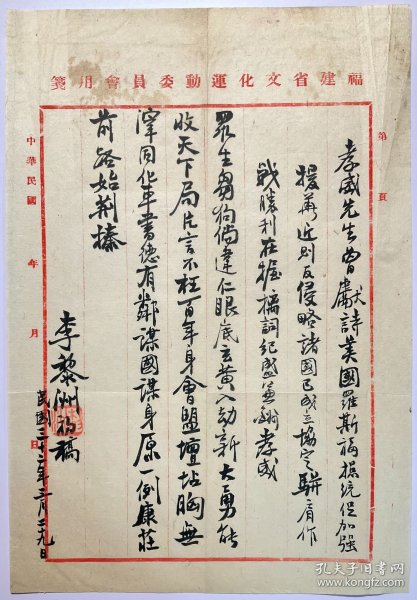 福建省文化運動委員會用箋
第 頁
孝威先生曾獻詩美國羅斯福總統促加強
援華近則反侵略諸國已成立協定駢肩作
戰勝利在握摛詞紀盛並酬孝威
眾生芻狗倘違仁眼底玄黃入劫新大勇能
收天下局片言不枉百年身會盟壇坫胸無
滓同化車書德有鄰謀國謀身原一例康莊
前路始荊榛
李黎洲初稿
民國三十二年三月九日
中華民國 年 月 日
孔夫子旧书网
www.kongfz.com